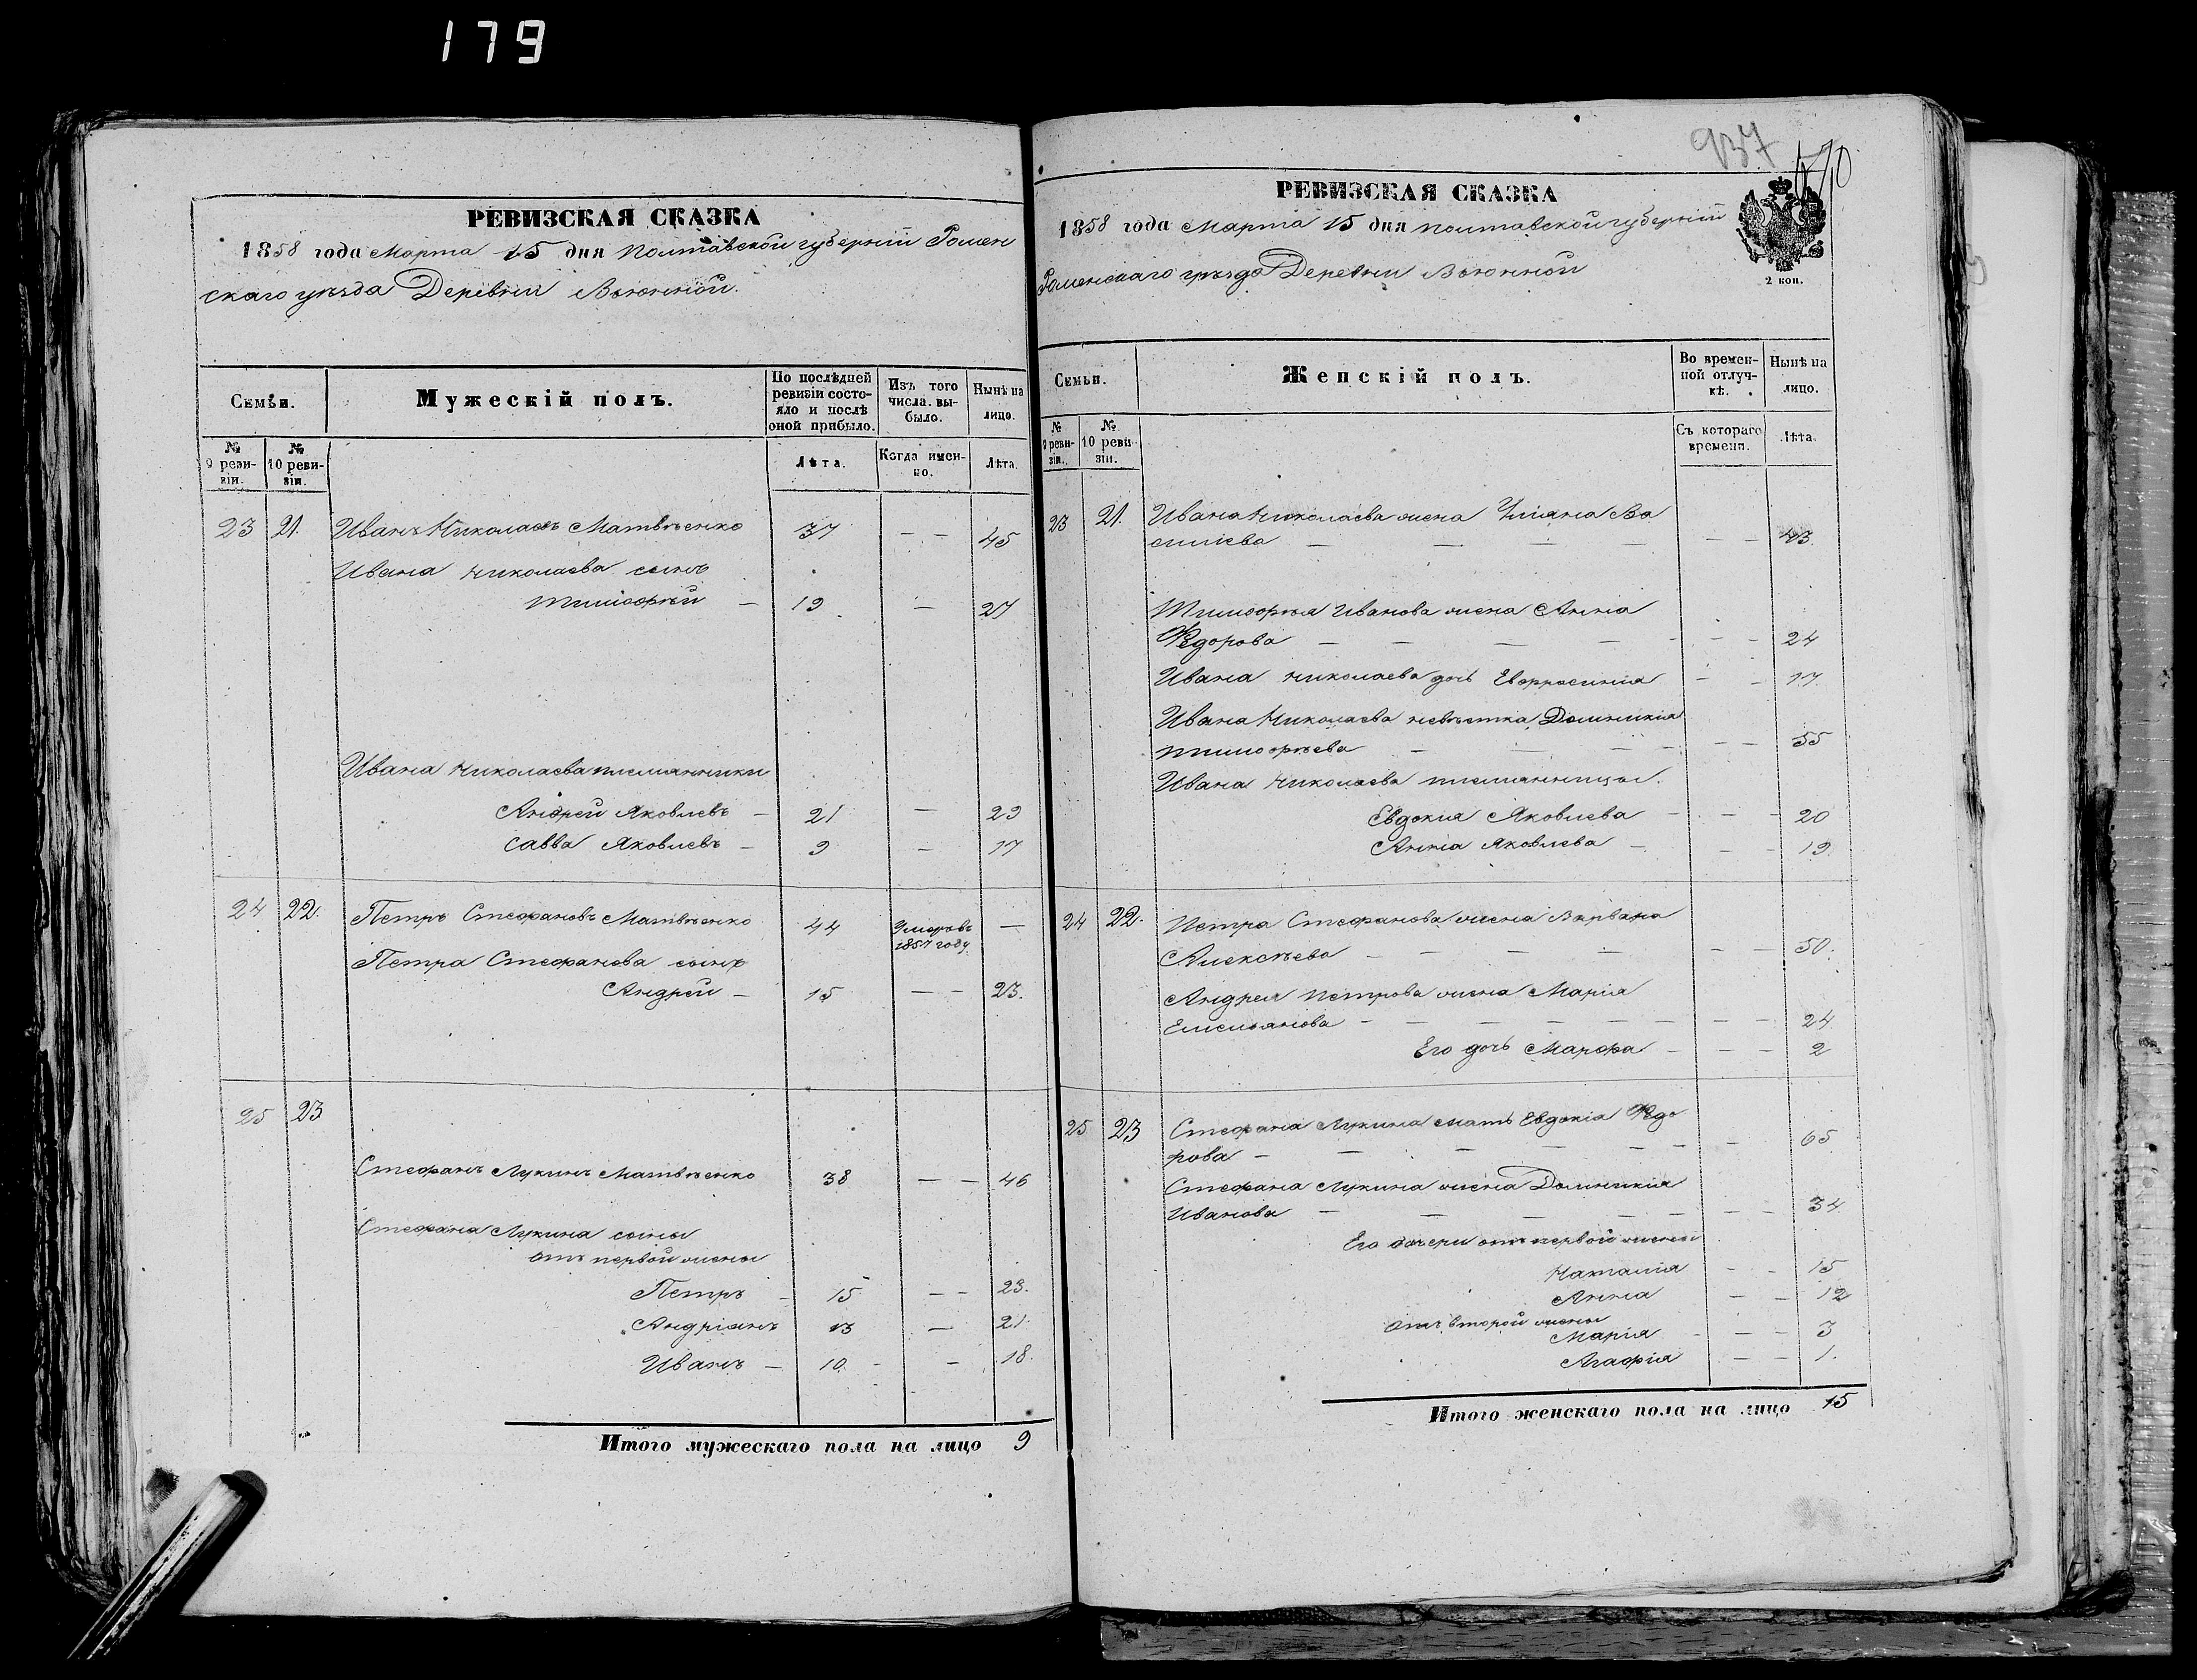 179
РЕВИЗСКАЯ СКАЗКА
1858 года Марта 15 дня Полтавской губернии Ромен
скаго уѣзда Деревни Вьюнной.
Семьи.
Мужескій полъ.
По послѣдней ревизіи состояло и послѣ оной прибыло.
Изъ того числа выбыло.
Нынѣ на лицо.
№ 9 ревизіи.
№ 10 ревизіи.
Лѣта.
Когда именно.
Лѣта.
23 21. Иванъ Николаевъ Матвѣенко 37 — — 45
Ивана Николаева сынъ
Тимофѣй — 19 — 27
Ивана Николаева племянники
Андрей Яковлевъ — 21 — 29
Савва Яковлевъ — 9 — 17
24 22. Петръ Стефановъ Матвѣенко 44 Умеръ въ 1857 году —
Петра Стефанова сынъ
Андрей — 15 — — 23.
25 23
Стефанъ Лукинъ Матвѣенко 38 — — 46
Стефана Лукина сыны
отъ первой жены
Петръ — 15 — — 23.
Андріянъ 13 — 21.
Иванъ — 10. — 18.
Итого мужескаго пола на лицо 9
937
РЕВИЗСКАЯ СКАЗКА
1858 года Марта 15 дня Полтавской губерніи
Роменскаго уѣзда Деревни Вьюнной
2 коп.
Семьи.
Женскій полъ.
Во временной отлучкѣ.
Нынѣ на лицо.
№ 9 ревизіи.
№ 10 ревизіи.
Съ котораго времени.
Лѣта.
23 21. Ивана Николаева жена Уліяна Ва
силіева — — — — — — 43
Тимофѣя Иванова жена Анна
Федорова — — — — — — 24
Ивана Николаева дочь Евфросинія — — 17.
Ивана Николаева невѣстка Домникія
Тимофѣева — — — — — — 55
Ивана Николаева племянницы.
Евдокия Яковлева — — — 20
Анна Яковлева — — — 19.
24 22. Петра Стефанова жена Варвара
Алексѣева — — — — — — 50.
Андрея Петрова жена Марія
Емельянова — — — — — — 24
Его дочь Марфа — — — 2
25 23 Стефана Лукина мать Евдокія Федо
рова — — — — — — 65.
Стефана Лукина жена Домникія
Иванова — — — — — — 34.
Его дочери отъ первой жены
Наталія — — 15
Анна — — 12
отъ второй жены
Марія — — — 3
Агафія — — 1.
Итого женскаго пола на лицо 15